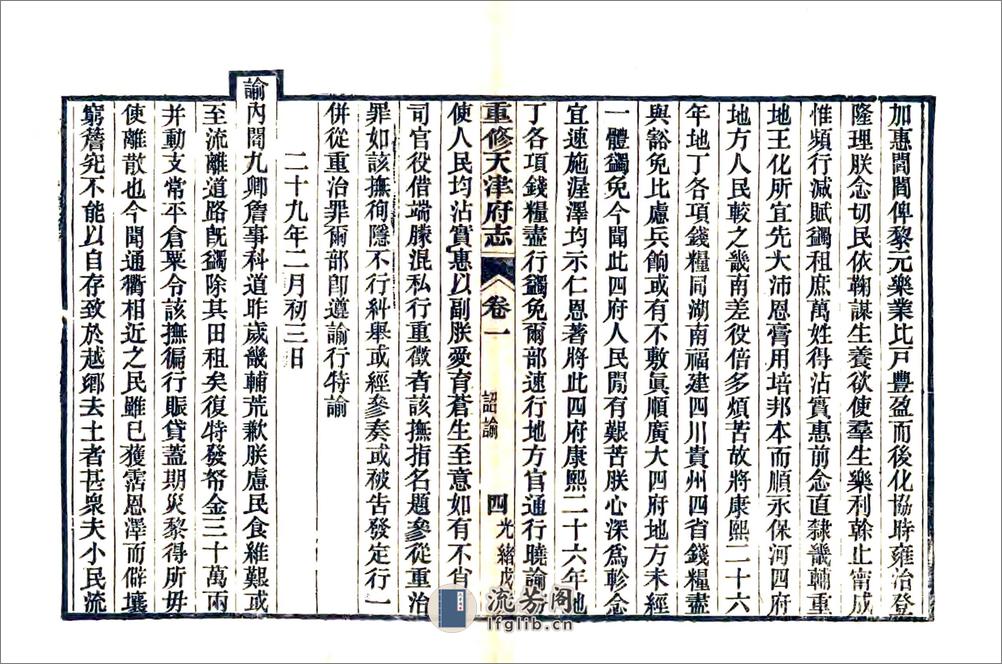 加惠閭閻俾黎元樂業比戸豐盈而後化協時雍治登
隆理朕念切民依鞠謀生養欲使羣生樂利榦止甯成
惟頻行減賦蠲租庶萬姓得沾實惠前念直隸畿輔重
地王化所宜先大沛恩膏用培邦本而順永保河四府
地方人民較之畿南差役倍多煩苦故將康熙二十六
年地丁各項錢糧同湖南福建四川貴州四省錢糧盡
與豁免比慮兵餉或有不敷眞順廣大四府地方未經
一體蠲免今聞此四府人民閒有艱苦朕心深爲軫念
宜速施渥澤均示仁恩著將此四府康熙二十六年地
丁各項錢糧盡行蠲免爾部速行地方官通行曉諭
重修天津府志 卷一 詔諭 四 光緒戊
使人民均沾實惠以副朕愛育蒼生至意如有不肖
司官役借端朦混私行重徵者該撫指名題參從重治
罪如該撫徇隱不行糾舉或經參奏或被告發定行一
併從重治罪爾部卽遵諭行特諭
二十九年二月初三日
諭內閣九卿詹事科道昨歲畿輔荒歉朕慮民食維艱或
至流離道路旣蠲除其田租矣復特發帑金三十萬兩
并動支常平倉粟令該撫徧行賑貸蓋期災黎得所毋
使離散也今聞通衢相近之民雖已獲霑恩澤而僻壤
窮簷究不能以自存致於越鄉去土者甚衆夫小民流
流芳阁
lfglib.cn